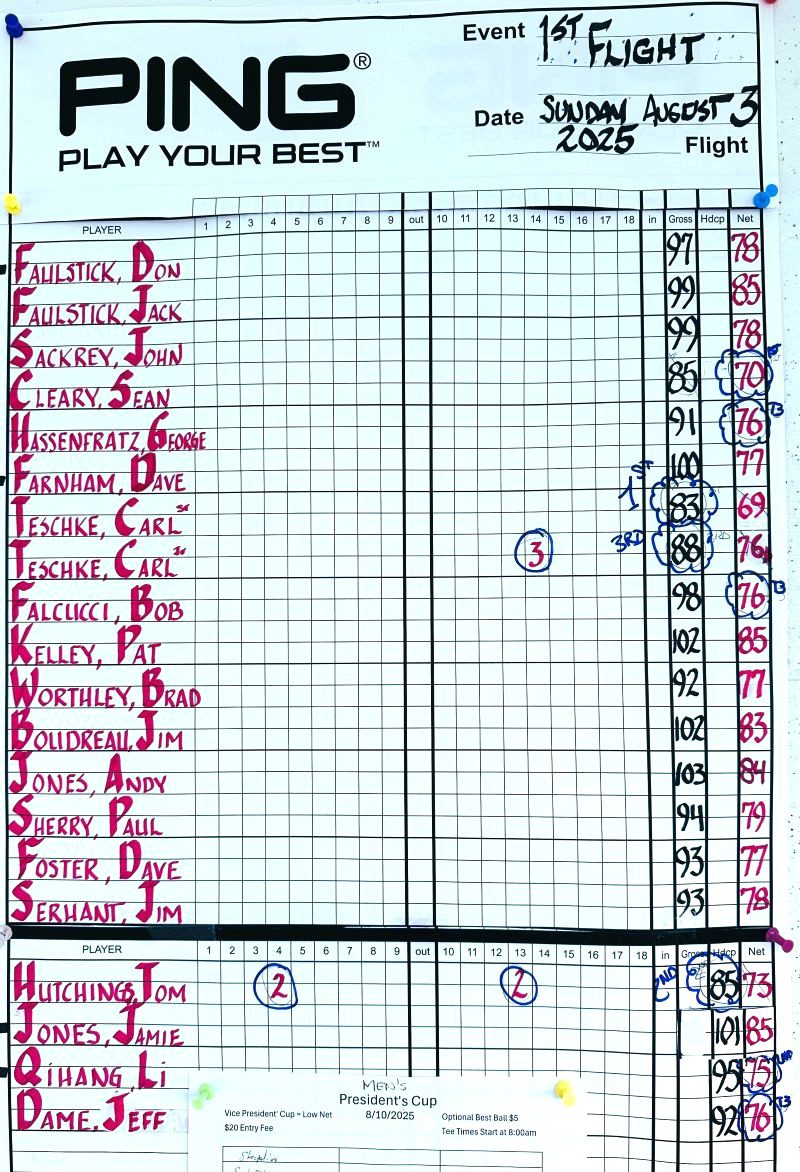 Event 1ST FLIGHT
PING®
PLAY YOUR BEST™
Date SUNDAY AUGUST 3
2025 Flight
PLAYER 1 2 3 4 5 6 7 8 9 out 10 11 12 13 14 15 16 17 18 in Gross Hdcp Net
FAULSTICK, DON 97 78
FAULSTICK, JACK 99 85
SACKREY, JOHN 99 78
CLEARY, SEAN 85 70 1ST
HASSENFRATZ, GEORGE 91 76 T3
FARNHAM, DAVE 100 77
TESCHKE, CARL SR 1ST 83 69
TESCHKE, CARL JR 3 3RD 88 76
FALCUCCI, BOB 98 76 T3
KELLEY, PAT 102 85
WORTHLEY, BRAD 92 77
BOUDREAU, JIM 102 83
JONES, ANDY 103 84
SHERRY, PAUL 94 79
FOSTER, DAVE 93 77
SERHANT, JIM 93 78
PLAYER 1 2 3 4 5 6 7 8 9 out 10 11 12 13 14 15 16 17 18 in Gross Hdcp Net
HUTCHINGS, TOM 2 2 2ND 85 73
JONES, JAMIE 101 85
QIHANG, Li 95 75 2ND
DAME, JEFF 92 76 T3
MEN'S
President's Cup
Vice President' Cup = Low Net 8/10/2025 Optional Best Ball $5
$20 Entry Fee Tee Times Start at 8:00am